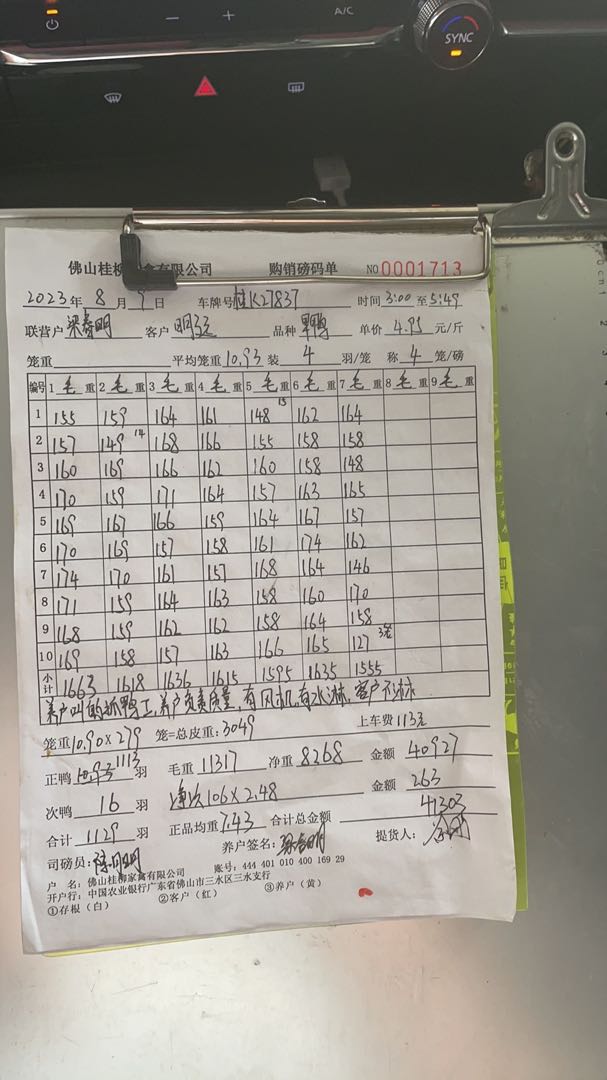 A/C
SYNC
佛山桂柳家禽有限公司 购销磅码单 NO 0001713
2023年 8 月 9 日 车牌号 桂K27837 时间 3:00 至 5:49
联营户 梁春明 客户 品种 单价 4.95 元/斤
笼重 平均笼重 10.93 装 4 羽/笼 称 4 笼/磅
编号 1 毛 重 2 毛 重 3 毛 重 4 毛 重 5 毛 重 6 毛 重 7 毛 重 8 毛 重 9 毛 重
1 155 159 164 161 148 15 162 164
2 157 149 14 168 166 155 158 158
3 160 169 166 162 160 158 148
4 170 159 171 164 157 163 165
5 169 167 166 159 164 167 157
6 170 169 157 158 161 174 162
7 174 170 161 157 168 164 146
8 171 159 164 163 158 160 170
9 168 159 162 162 158 164 158
10 169 158 157 163 166 165 127 3笼
小计 1663 1618 1636 1615 1595 1635 1555
养户叫的抓鸭工,养户负责质量,有风机,有水淋,客户不淋
笼重 10.90×279 笼=总皮重: 3049 上车费 113元
正鸭 1113 羽 毛重 11317 净重 8268 金额 40927
次鸭 16 羽 106×2.48 金额 263
合计 1129 羽 正品均重 7.43 合计总金额 41303
司磅员: 养户签名: 梁春明 提货人:
户 名: 佛山桂柳家禽有限公司 账号: 444 401 010 400 169 29
开户行: 中国农业银行广东省佛山市三水区三水支行
①存根(白) ②客户(红) ③养户(黄)